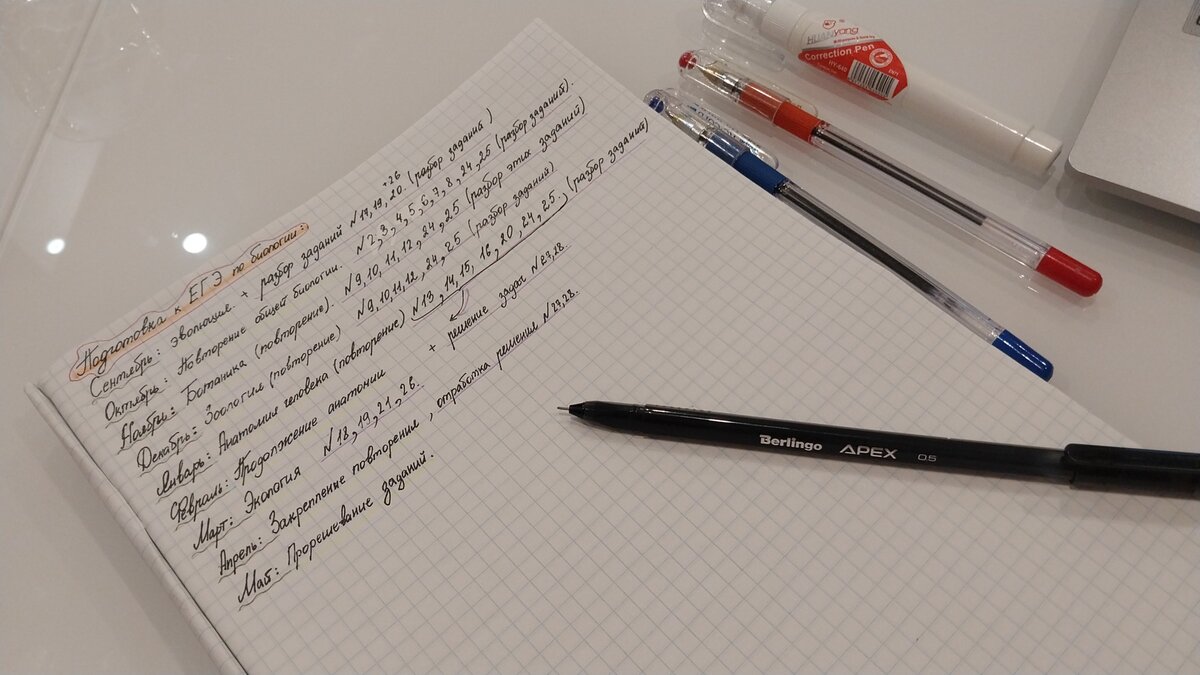 Подготовка к ЕГЭ по биологии:
+26
Сентябрь: Эволюция. + разбор заданий №17, 19, 20. (разбор заданий)
Октябрь: Повторение общей биологии. №2, 3, 4, 5, 6, 7, 8, 24, 25 (разбор заданий).
Ноябрь: Ботаника (повторение). №9, 10, 11, 12, 24, 25 (разбор этих заданий)
Декабрь: Зоология (повторение) №9, 10, 11, 12, 24, 25 (разбор заданий)
Январь: Анатомия человека (повторение) №13, 14, 15, 16, 20, 24, 25. (разбор заданий)
Февраль: Продолжение анатомии + решение задач №27, 28.
Март: Экология №18, 19, 21, 26.
Апрель: Закрепление повторения, отработка решения №27, 28.
Май: Прорешивание заданий.
HUANyang
Correction Pen
HY-640
Berlingo APEX 0.5